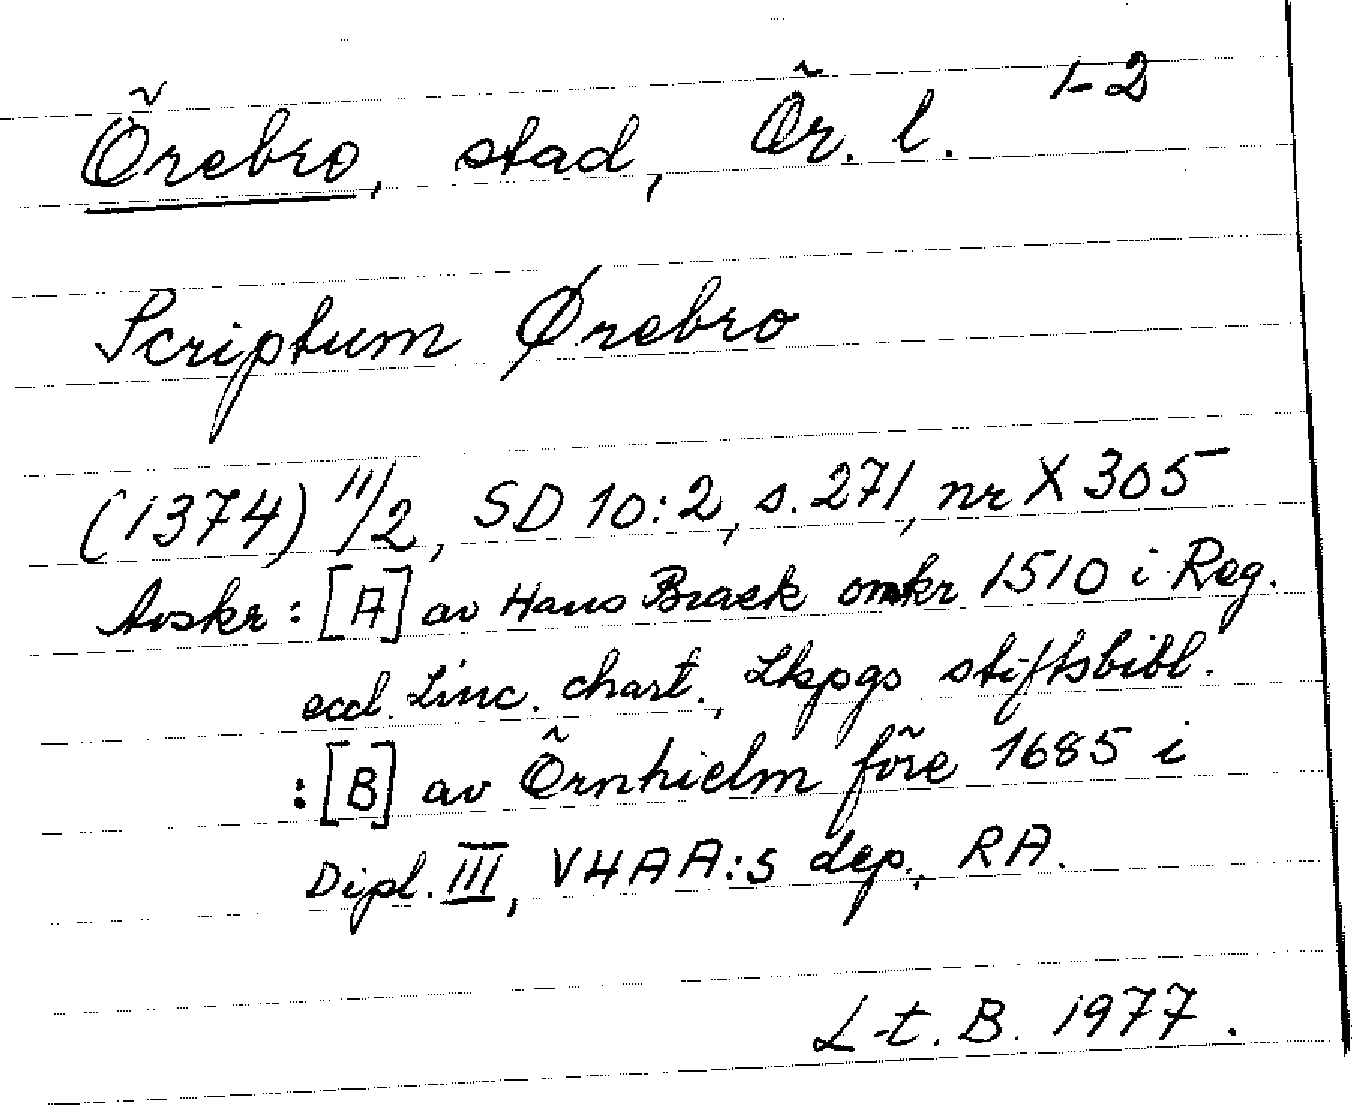 Örebro, stad, Ör. l. 1-2
Scriptum Ørebro
(1374) 11/2, SD 10:2, s. 271, nr X 305
Avskr: [A] av Hans Brask omkr 1510 i Reg.
eccl. Linc. chart., Lkpgs stiftsbibl.
: [B] av Örnhielm före 1685 i
Dipl. III, VHAA:s dep., RA.
L-t. B. 1977.